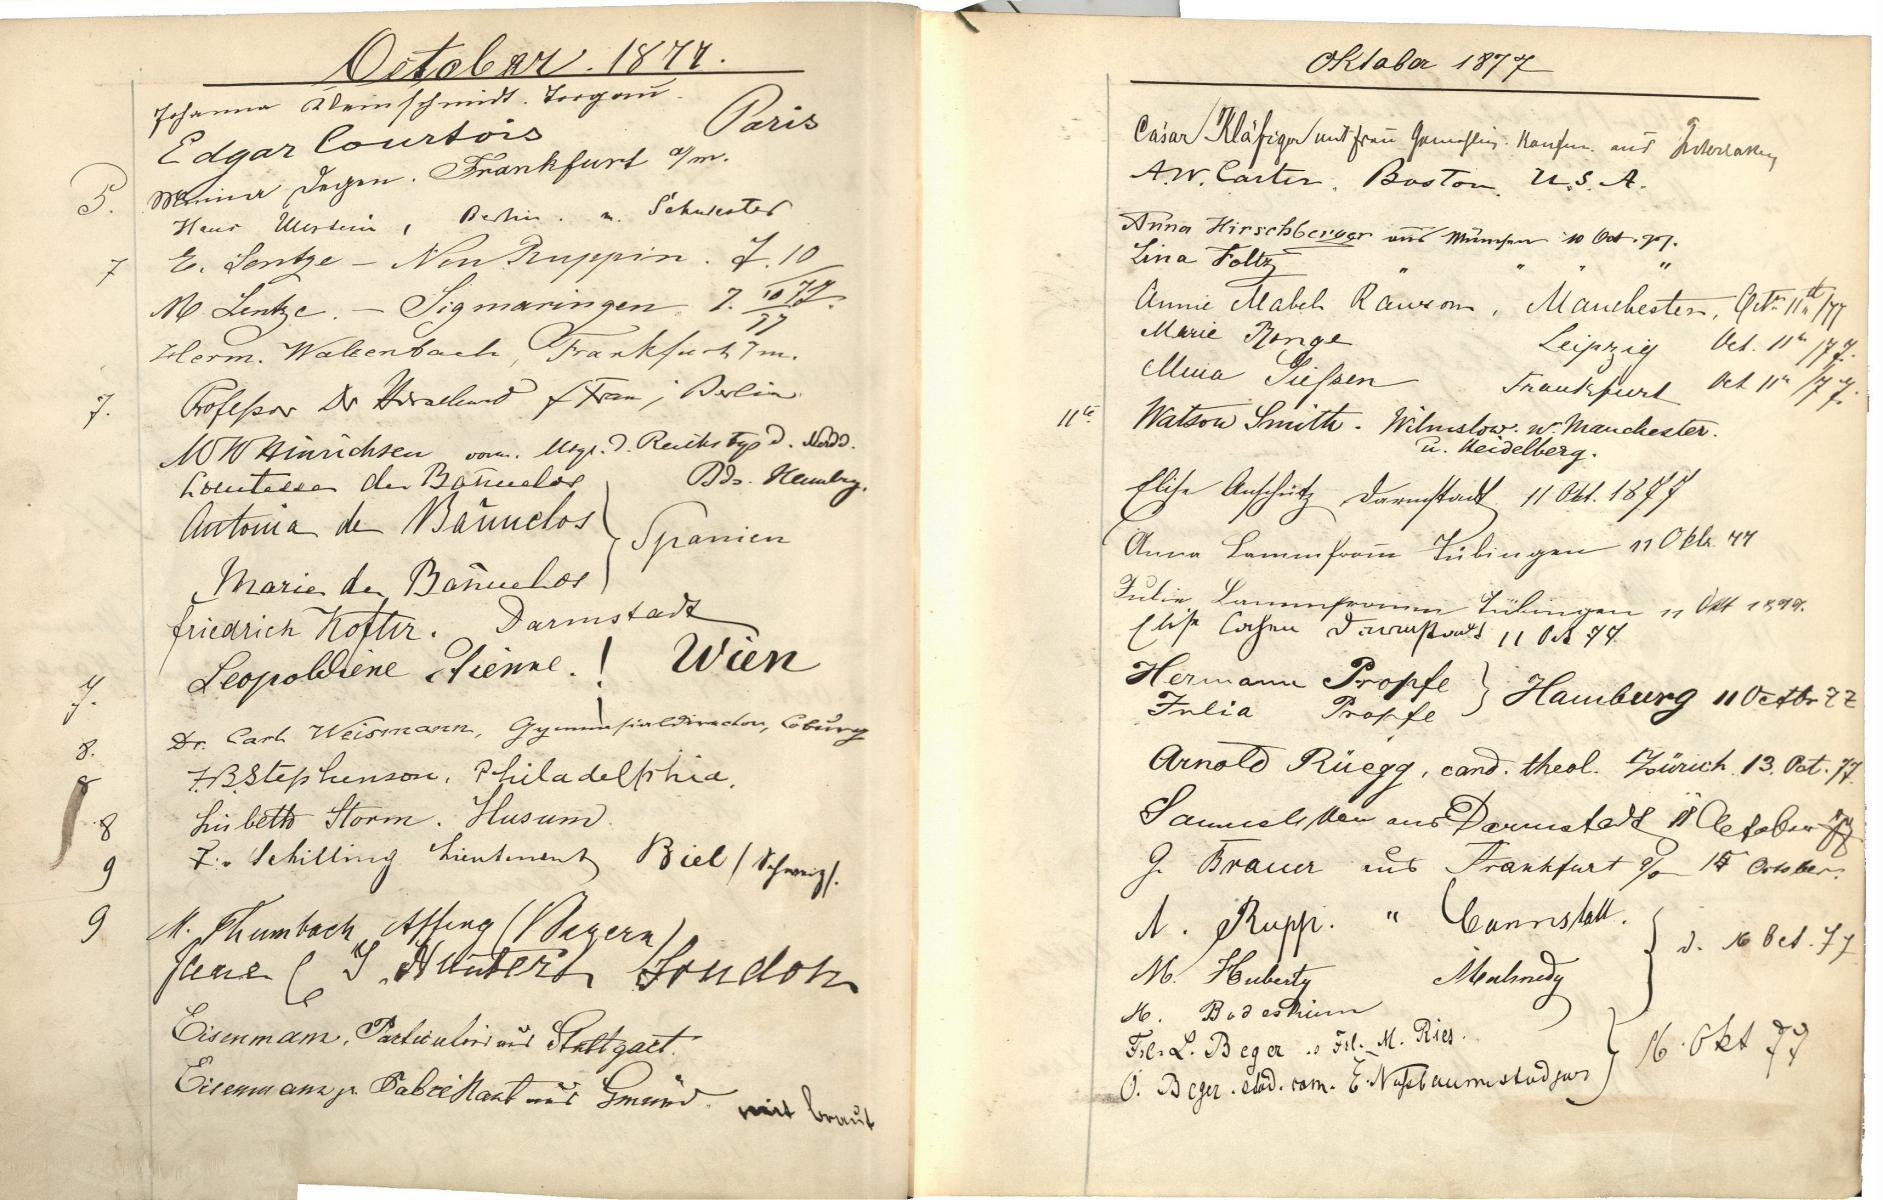 October. 1877.
Johanna Kleinschmidt. Torgau.
Edgar Courtois Paris
5. Degen. Frankfurt a/m.
Hans Berlin. u. Schwester
7 E. Lentze – Neu Ruppin. 7. 10
M Lentze. – Sigmaringen 7. 10 77.
77
Herm. Walzenbach, Frankfurt a/m.
7. Professor Dr & Frau, Berlin.
M W Hinrichsen vorm. d. Reichstgs d. Nordd.
Comtesse de Bañuelos Bds. Hambrg.
Antonia de Bañuelos
Spanien
Marie de Bañuelos
Friedrich Kofler. Darmstadt
Leopoldine Etienne. ! Wien
7.
Dr. Carl Weismann, Gymnasialdirector, Coburg
8. F.B. Stephenson, Philadelphia.
8
8 Lisbeth Storm. Husum.
9 F. Schilling Lieutenant Biel / Schweiz /.
9 M. Thumbach Assing (Bayern)
Jane ( G. Hunter London
Eisenmann, Particulier aus Stuttgart.
Eisenmann jr. Fabrikant aus Gmünd. mit braut
Oktober 1877
Cäsar Kläfiger und frau Gemahlin. Kaufm. aus Interlaken
A.W. Carter. Boston. U.S.A.
Anna Hirschberger aus München 10 Oct. 77.
Lina Foltz " " " "
Annie Mabel Rawson, Manchester, Octr. 11th/77
Marie Ronge Leipzig Oct. 11th/77.
Mina Siefsen Frankfurt Oct 11th/77.
11te Watson Smith. Wilmslow. nr. Manchester.
u. Heidelberg.
Elise Anschütz Darmstadt 11 Okt. 1877
Anna Lammfromm Tübingen 11 Oktb. 77
Julie Lammfromm Tübingen 11 Okt 1877.
Elise Darmstadt 11 Oct 77
Hermann Propfe Hamburg 11 Octbr 77
Julia Propfe
Arnold Rüegg, cand. theol. Zürich 13. Oct. 77.
aus Darmstadt October 77
G. Brauer aus Frankfurt a/m 15 October.
A. Rupp. " Cannstatt.
d. 16 Oct. 77
M. Huberty Malmedy
M. Bodesheim
Frl. L. Beger. Frl. M. Ries.
16. Okt 77
O. Beger. stud. cam. E. Nussbaum stud jur